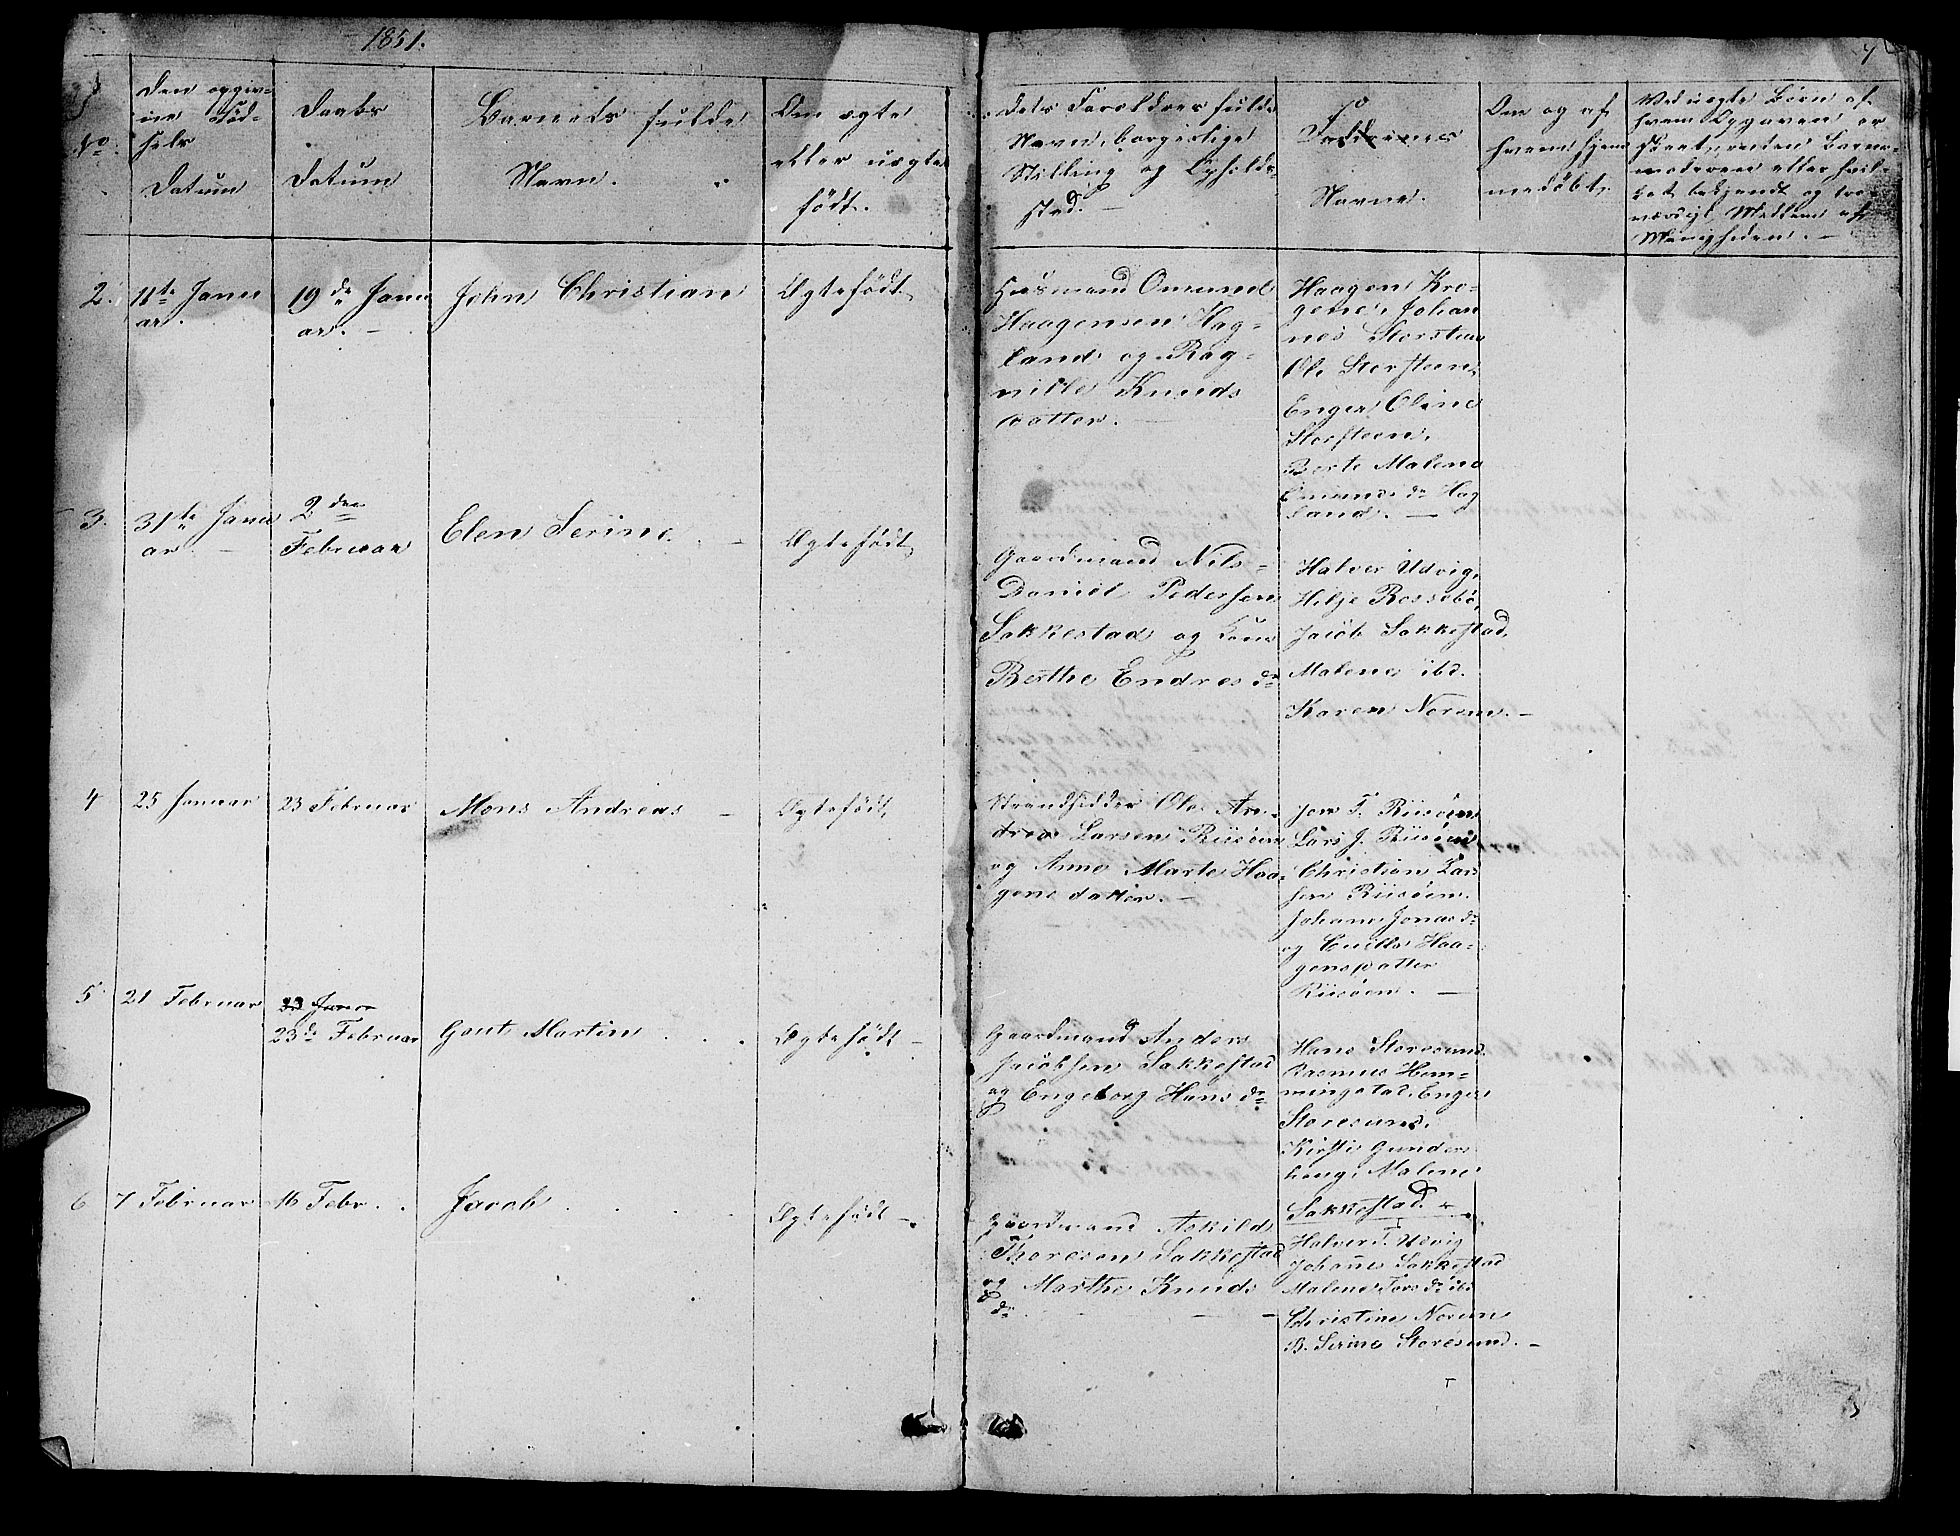 1851.
7
No
Den opgiv-
ne Fød-
sels
Datum
Daabs
Datum
Barnets fulde
Navn.
Om ægte
eller uægte
født.
Dets Forældres fulde
Navn, borgerlige
Stilling og Opholds-
sted.
Faddernes
Navne.
Om og af
hvem hjem-
medøbt.
Ved uægte Børn af
hvem Opgaven er
skeet, enten Barne-
moderen eller hvil-
ket bekjendt og tro-
værdigt Medlem af
Menigheden.
2.
11te Janu
ar.
19de Janu
ar.
John Christian
Ægtefødt
Huusmand Omund
Haagensen Hag-
land og Rag-
nille Knuds
datter.
Haagen Kro-
gene, Johan
nes Storsteen
Ole Storsteen,
Enger Oline
Storsteen,
Berte Malena
Omunds dr Hag
land.
3.
31te Janu
ar
2den
Februar
Elen Serine
Ægtefødt
Gaardmand Nils
Daniel Pedersen
Sakkestad og Kone
Berthe Endres dr
Halver Udvig,
Hilje Rossebø,
Jacob Sakkestad,
Malene ibd.
Karen Norum.
4
25 Januar
23 Februar
Mons Andreas
Ægtefødt
Strandsidder Ole An-
dreas Larsen Riisøen
og Anne Marte Haa-
gens datter.
Jon T. Riisøen
Lars J. Riisøen
Christian Lar
sen Riisøen.
Johane Jonas dr
og Haa-
gensdatter
Riisøen.
5
21 Februar
23 Januar
23de Februar
Gout Martin
Ægtefødt
Gaardmand Anders
Jacobsen Sakkestad
og Engeborg Hans dr
Hans Storesund.
Rasmus Hem-
mingstad, Enger
Storesund,
Kirsti Gunders
houg, Malene
Sakkestad.
6
7 Februar
16 Febr.
Jacob
Ægtefødt
Gaardmand Askild
Thoresen Sakkestad
og Marthe Knuds
dr
Halver T. Udvig
Johane Sakkestad
Malene Tors dr ibd
Christine Norum
B. Serine Storesund.